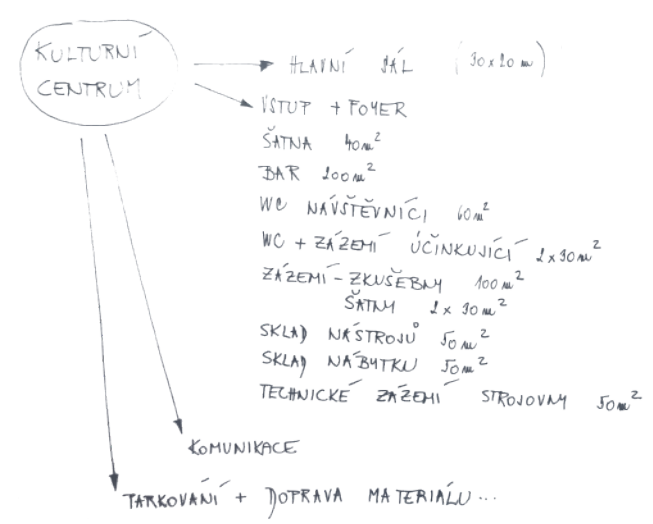 KULTURNÍ
CENTRUM
HLAVNÍ SÁL (30 x 20 m)
VSTUP + FOYER
ŠATNA 40 m²
BAR 200 m²
WC NÁVŠTĚVNÍCI 60 m²
WC + ZÁZEMÍ ÚČINKUJÍCÍ 2 x 30 m²
ZÁZEMÍ - ZKUŠEBNY 100 m²
ŠATNY 2 x 30 m²
SKLAD NÁSTROJŮ 50 m²
SKLAD NÁBYTKU 50 m²
TECHNICKÉ ZÁZEMÍ STROJOVNY 50 m²
KOMUNIKACE
PARKOVÁNÍ + DOPRAVA MATERIÁLU...